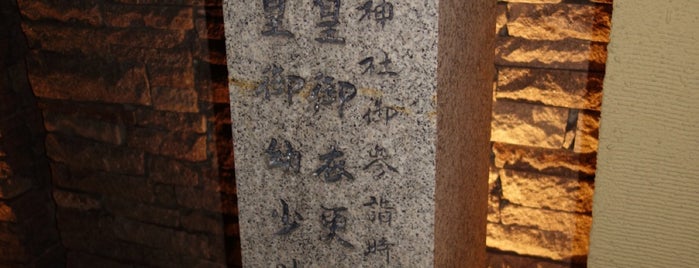 神社御参詣時
皇御衣更
皇御幼少